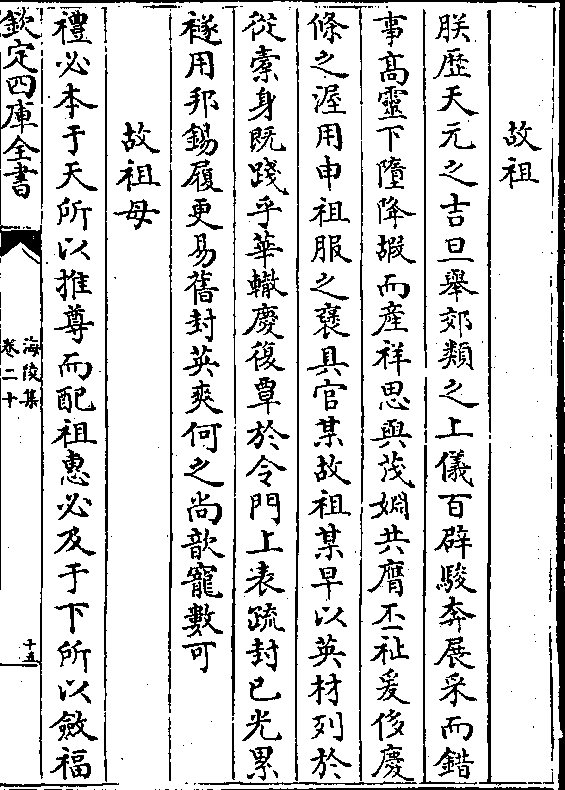 故祖
朕歴天元之吉旦舉郊類之上儀百辟駿奔展采而錯
事髙靈下墮降嘏而產祥思與茂嫺共膺丕祉爰侈慶
條之渥用申祖服之襃具官某故祖某早以英材列於
從槖身既踐乎華轍慶復覃於令門上表䟽封已光累
襚用邦錫履更易舊封英爽何之尚歆寵數可
故祖母
禮必本于天所以推尊而配祖惠必及于下所以斂福
欽定四庫全書
海陵集
卷二十
十五